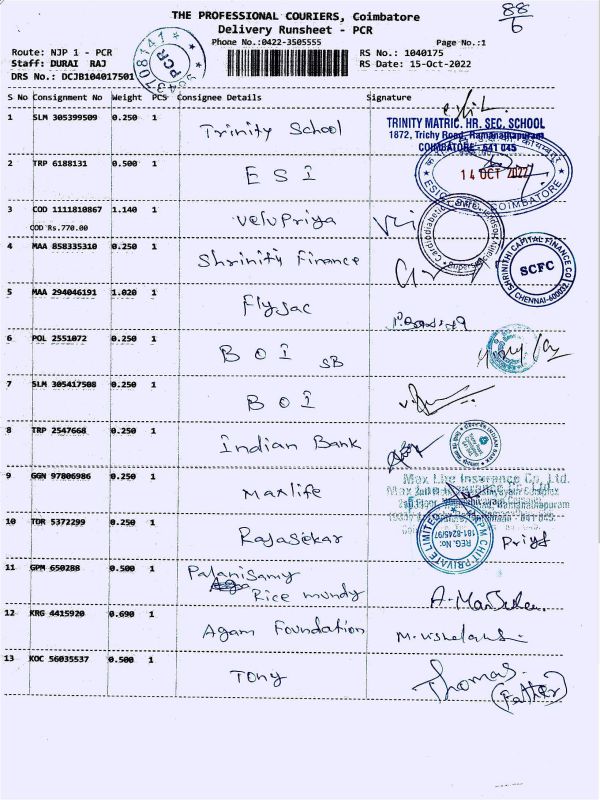 THE PROFESSIONAL COURIERS, Coimbatore
88/6
Delivery Runsheet - PCR
Phone No.:0422-3505555
Page No.:1
Route: NJP 1 - PCR
RS No.: 1040175
Staff: DURAI RAJ
RS Date: 15-Oct-2022
DRS No.: DCJB104017501
PCR
S No Consignment No Weight PCS Consignee Details Signature
1 SLM 305399509 0.250 1 Trinity School
TRINITY MATRIC. HR. SEC. SCHOOL
1872, Trichy Road, Ramanathapuram
COIMBATORE - 641 045
2 TRP 6188131 0.500 1 ESI
14 OCT 2022
3 COD 1111810867 1.140 1 Velupriya
COD Rs.770.00
4 MAA 858335310 0.250 1 Shrinity Finance
SHRINITHI CAPITAL FINANCE CO
SCFC
CHENNAI-600032
5 MAA 294046191 1.020 1 Flyjac
6 POL 2551072 0.250 1 BOI SB
7 SLM 305417508 0.250 1 BOI
8 TRP 2547668 0.250 1 Indian Bank
INDIAN BANK
9 GGN 97806986 0.250 1 Maxlife
Max Life Insurance Co. Ltd.
10 TDR 5372299 0.250 1 Rajasekar
KPM CHIT PRIVATE LIMITED
REG. No:
181-8245/97
Priya
11 GPM 650288 0.500 1 Palanisamy
Rice mundy
12 KRG 4415920 0.690 1 Agam Foundation
13 KOC 56035537 0.500 1 Tony
Thomas
(Father)